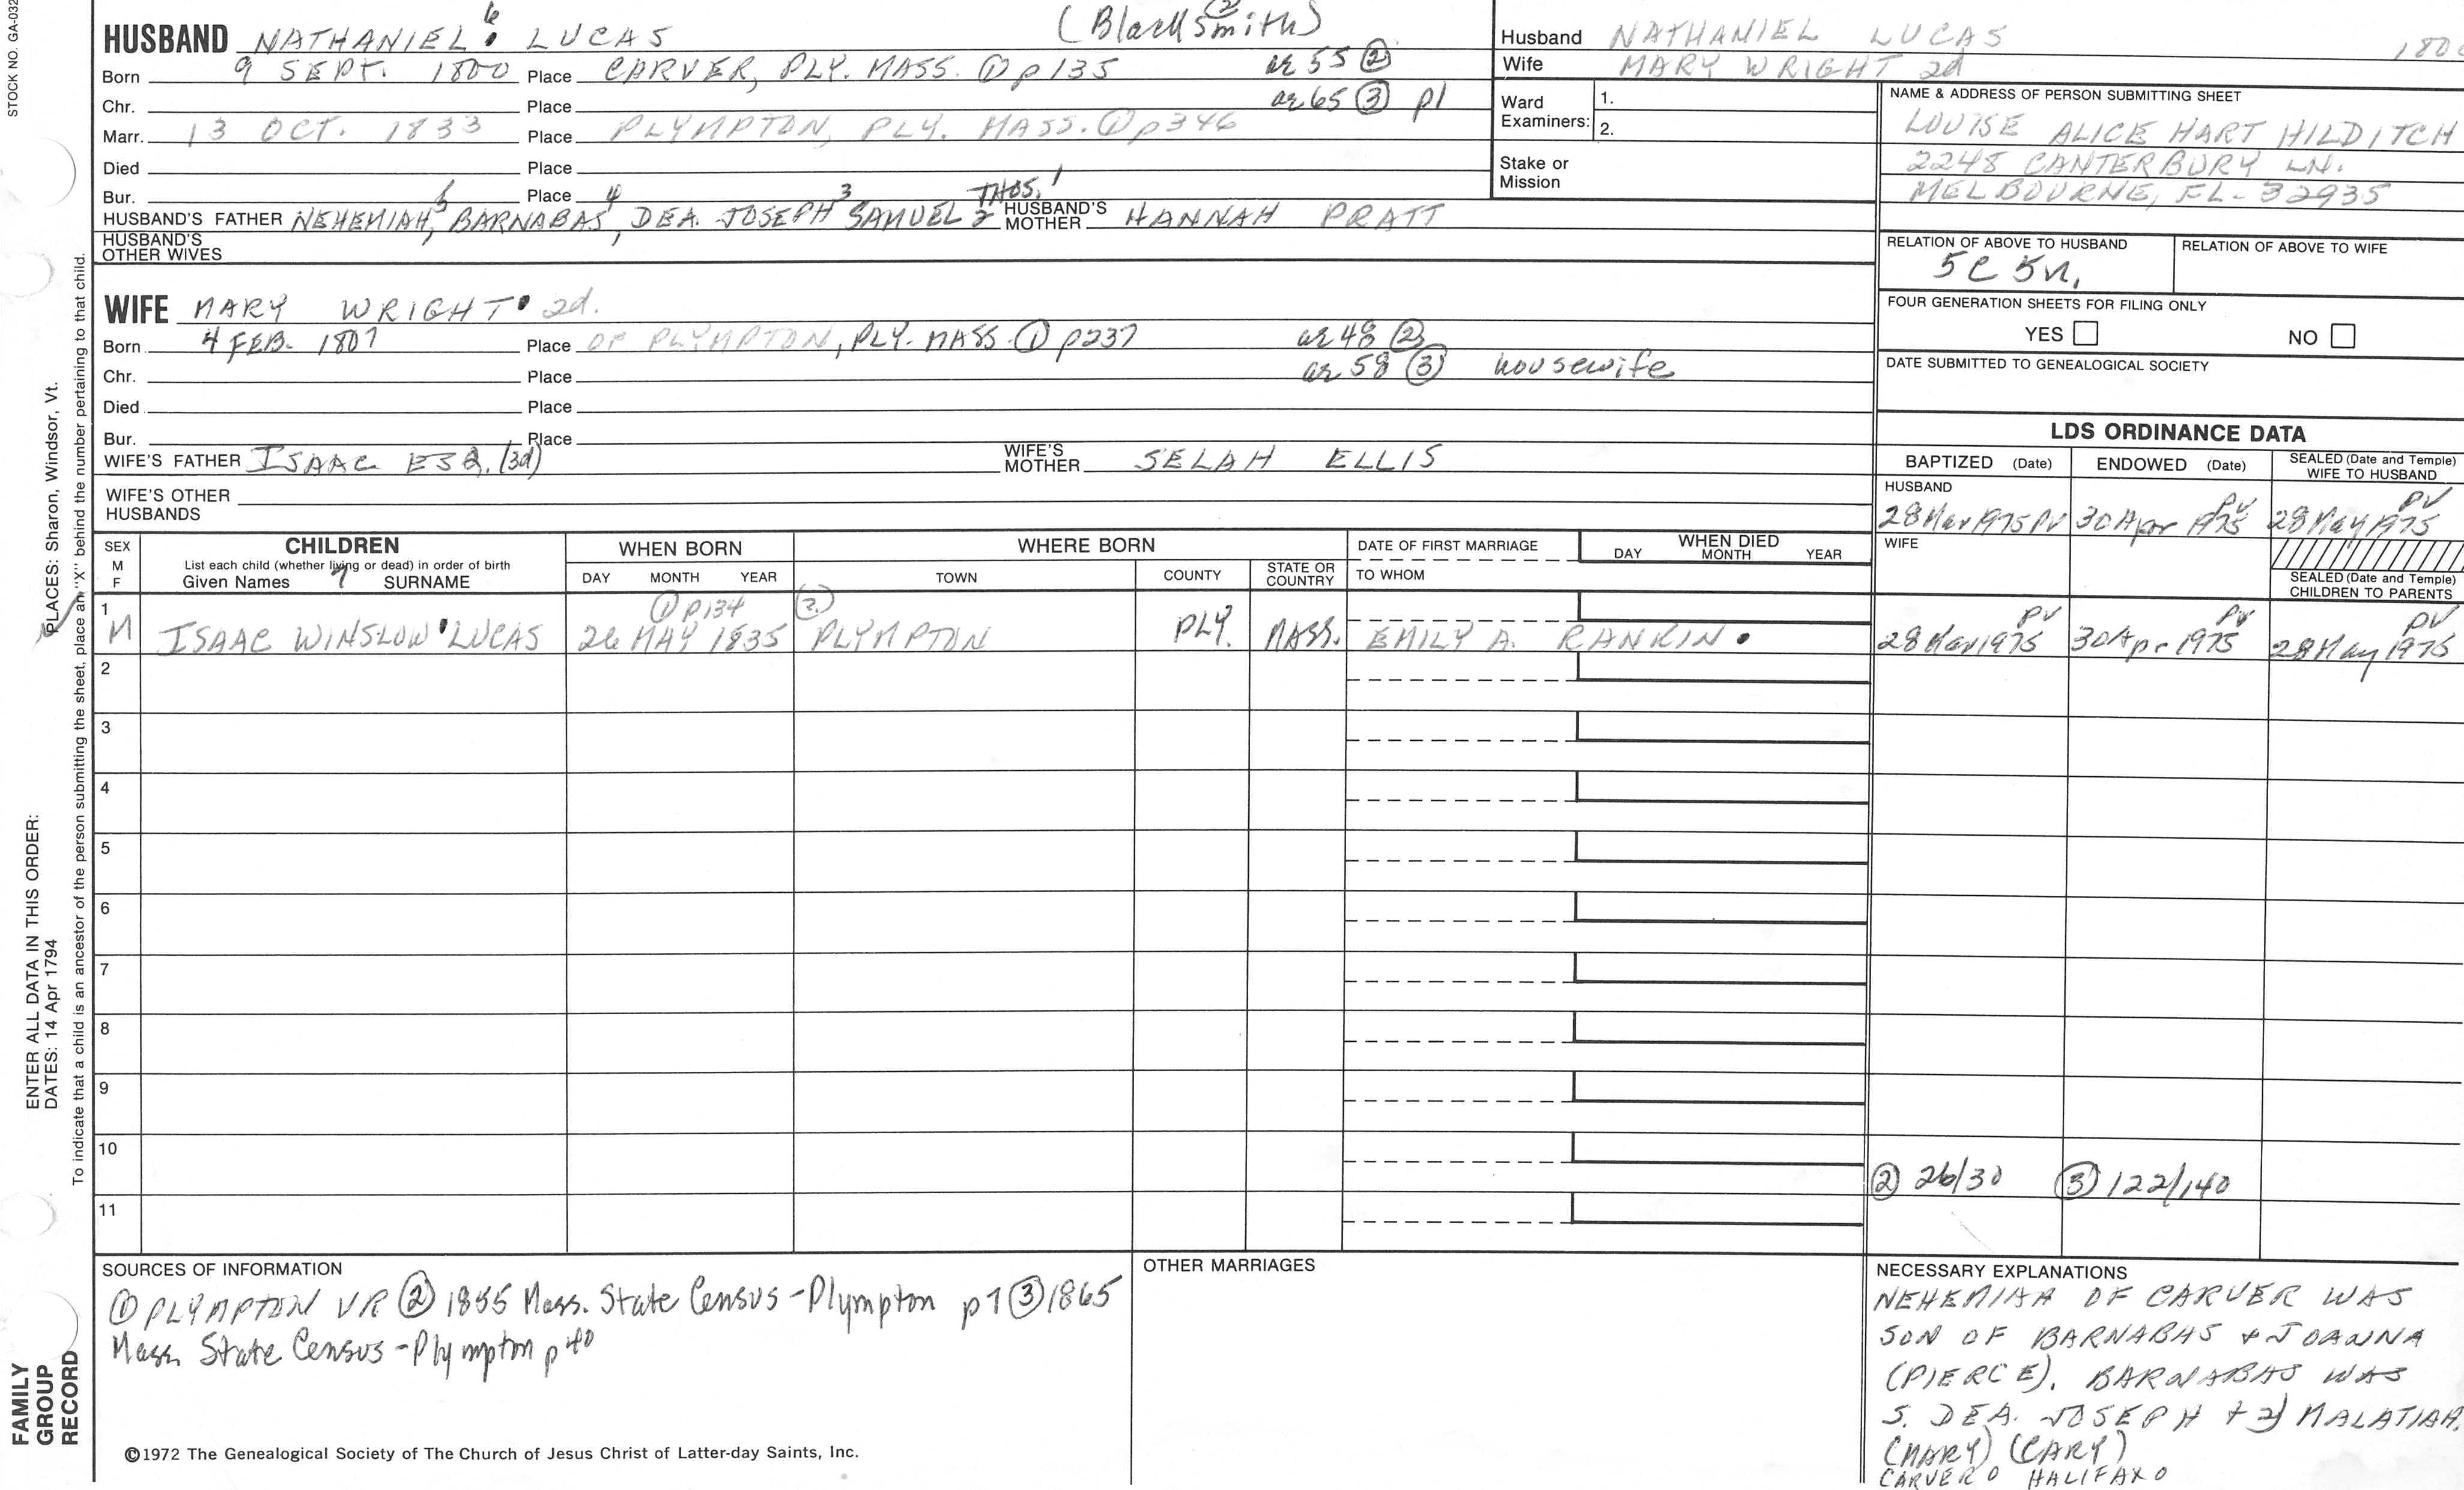 STOCK NO. GA-032
PLACES: Sharon, Windsor, Vt.
ENTER ALL DATA IN THIS ORDER:
DATES: 14 Apr 1794
To indicate that a child is an ancestor of the person submitting the sheet, place an "X" behind the number pertaining to that child.
FAMILY
GROUP
RECORD
HUSBAND NATHANIEL 6 LUCAS (Blacksmith) (2)
Born 9 SEPT. 1800 Place CARVER, PLY. MASS. (1) p 135 ae 55 (2)
Chr. Place ae 65 (3) p1
Marr. 13 OCT. 1833 Place PLYMPTON, PLY. MASS. (1) p 346
Died Place
Bur. Place
HUSBAND'S FATHER NEHEMIAH 5, BARNABAS 4, DEA. JOSEPH 3 SAMUEL 2 THOS. 1 HUSBAND'S MOTHER HANNAH PRATT
HUSBAND'S
OTHER WIVES
WIFE MARY WRIGHT 2d.
Born 4 FEB. 1807 Place OF PLYMPTON, PLY. MASS (1) p237 ae 48 (2)
Chr. Place ae 58 (3) housewife
Died Place
Bur. Place
WIFE'S FATHER ISAAC ESQ. (3d) WIFE'S MOTHER SELAH ELLIS
WIFE'S OTHER
HUSBANDS
Husband NATHANIEL LUCAS
Wife MARY WRIGHT 2d
Ward
Examiners: 1.
2.
Stake or
Mission
NAME & ADDRESS OF PERSON SUBMITTING SHEET
LOUISE ALICE HART HILDITCH
2248 CANTERBURY LN.
MELBOURNE, FL - 32935
RELATION OF ABOVE TO HUSBAND RELATION OF ABOVE TO WIFE
5C 5R.
FOUR GENERATION SHEETS FOR FILING ONLY
YES NO
DATE SUBMITTED TO GENEALOGICAL SOCIETY
LDS ORDINANCE DATA
BAPTIZED (Date) ENDOWED (Date) SEALED (Date and Temple) WIFE TO HUSBAND
HUSBAND
28 Mar 1975 PV 30 Apr 1975 PV 28 May 1975 PV
WIFE
SEALED (Date and Temple)
CHILDREN TO PARENTS
SEX M F CHILDREN WHEN BORN WHERE BORN DATE OF FIRST MARRIAGE WHEN DIED
List each child (whether living or dead) in order of birth
Given Names 7 SURNAME DAY MONTH YEAR TOWN COUNTY STATE OR COUNTRY TO WHOM DAY MONTH YEAR
1 (1) p134 (2)
M ISAAC WINSLOW LUCAS 26 MAY 1835 PLYMPTON PLY. MASS. EMILY A. RANKIN 28 Mar 1975 PV 30 Apr 1975 PV 28 May 1975 PV
2
3
4
5
6
7
8
9
10
(2) 26/30 (3) 122/140
11
SOURCES OF INFORMATION
(1) PLYMPTON VR (2) 1855 Mass. State Census - Plympton p 1 (3) 1865
Mass. State Census - Plympton p 40
OTHER MARRIAGES
NECESSARY EXPLANATIONS
NEHEMIAH OF CARVER WAS
SON OF BARNABAS & JOANNA
(PIERCE). BARNABAS WAS
S. DEA. JOSEPH + 2) MALATIAH.
(MARY) (CARY)
CARVER HALIFAX
©1972 The Genealogical Society of The Church of Jesus Christ of Latter-day Saints, Inc.